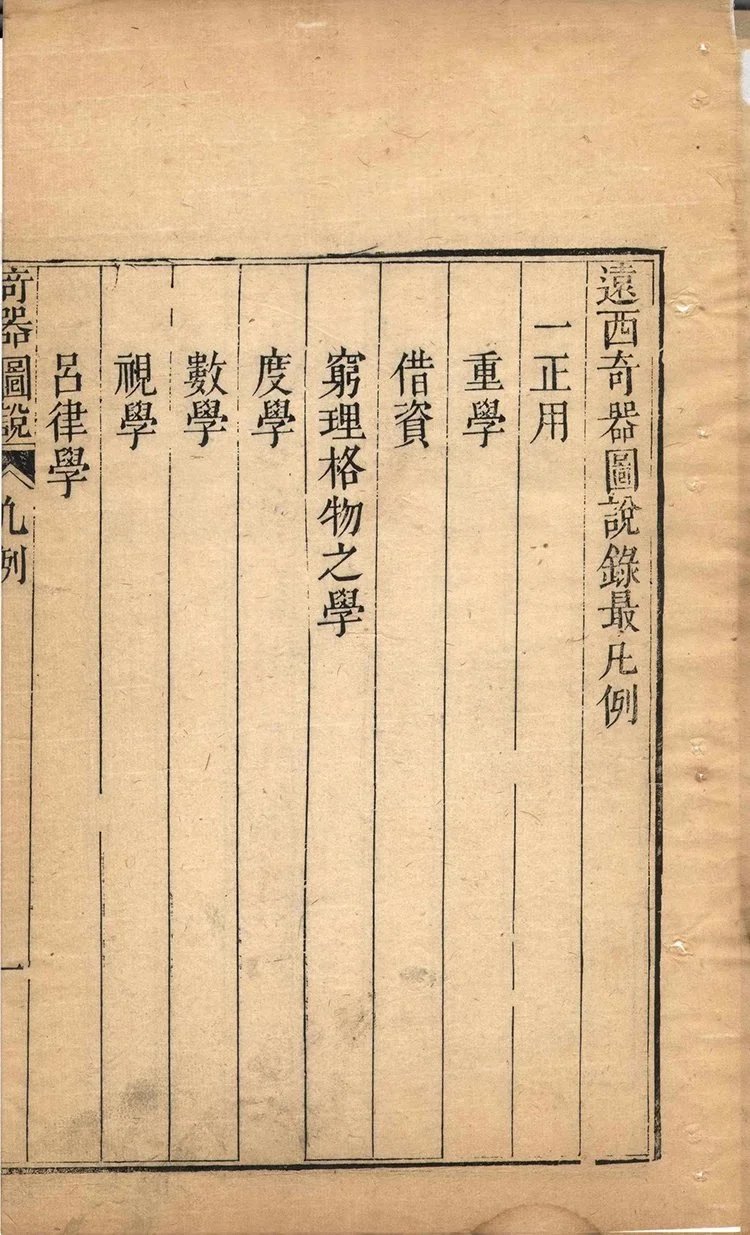 遠西奇器圖說錄最凡例
一正用
重學
借資
窮理格物之學
度學
數學
視學
呂律學
奇器圖說 凡例 一